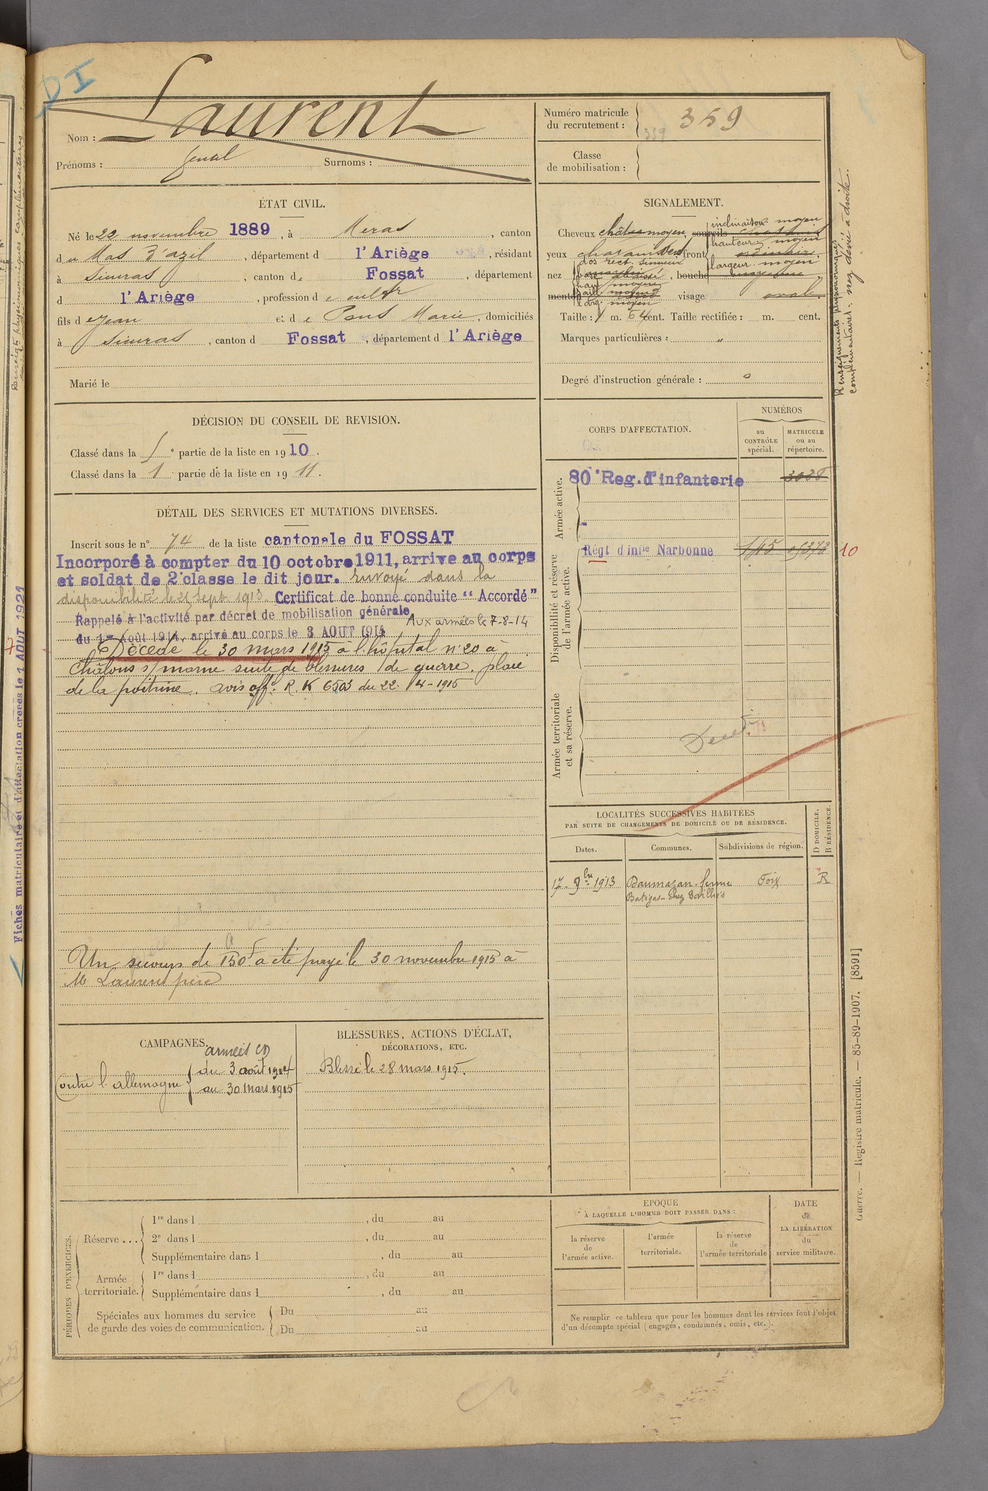 DI
Nom : Laurent
Prénoms : Surnoms :
Numéro matricule du recrutement : 359
359
Classe de mobilisation :
ÉTAT CIVIL.
Né le 22 novembre 1889, à Méras, canton
du Mas d'azil, département d l'Ariège, résidant
à Sieuras, canton de Fossat, département
d l'Ariège, profession de cultr
fils de Jean et de Pons Marie, domiciliés
à Sieuras, canton d Fossat, département d l'Ariège
Marié le
SIGNALEMENT.
Cheveux châtain moyen,
inclinaison moyen
hauteur moyen
largeur moyen
yeux front
dos rect. sinueux
nez bouche
menton visage ovale
Taille : 1 m. 64 cent. Taille rectifiée : m. cent.
Marques particulières : "
Degré d'instruction générale : 0
Renseignements physionomiques complémentaires : nez dévié à droite.
DÉCISION DU CONSEIL DE REVISION.
Classé dans la 5e partie de la liste en 1910.
Classé dans la 1 partie de la liste en 1911.
DÉTAIL DES SERVICES ET MUTATIONS DIVERSES.
Inscrit sous le n° 74 de la liste cantonale du FOSSAT
Incorporé à compter du 10 octobre 1911, arrive au corps
et soldat de 2e classe le dit jour. Envoyé dans la
disponibilité le 25 sept 1913. Certificat de bonne conduite "Accordé"
Rappelé à l'activité par décret de mobilisation générale
du 1er Août 1914, arrivé au corps le 3 AOUT 1914 Aux armées le 7-8-14
Décédé le 30 mars 1915 à l'hôpital n° 20 à
Châlons s/ marne suite de blessures de guerre, plaie
de la poitrine. avis offel R. K 6503 du 22-4-1915
Un secours de 150f a été payé le 30 novembre 1915 à
Mr Laurent père
CORPS D'AFFECTATION.
NUMÉROS
au CONTRÔLE spécial.
MATRICULE ou au répertoire.
Armée active.
80e Reg. d'infanterie
Disponibilité et réserve de l'armée active.
Régt d'infie Narbonne
10
Armée territoriale et sa réserve.
LOCALITÉS SUCCESSIVES HABITÉES
PAR SUITE DE CHANGEMENTS DE DOMICILE OU DE RÉSIDENCE.
Dates. Communes. Subdivisions de région. D DOMICILE. R RÉSIDENCE.
17 9bre 1913 Daumazan-ferme Foix R
CAMPAGNES.
armées CD
Contre l'allemagne du 3 août 1914
au 30 mars 1915
BLESSURES, ACTIONS D'ÉCLAT,
DÉCORATIONS, ETC.
Blessé le 28 mars 1915.
PÉRIODES D'EXERCICES.
Réserve ....
1re dans l , du au
2e dans l , du au
Supplémentaire dans l , du au
Armée territoriale.
1re dans l , du au
Supplémentaire dans l , du au
Spéciales aux hommes du service de garde des voies de communication.
Du au
Du au
EPOQUE
À LAQUELLE L'HOMME DOIT PASSER DANS :
la réserve de l'armée active.
l'armée territoriale.
la réserve de l'armée territoriale
DATE de LA LIBÉRATION du service militaire.
Ne remplir ce tableau que pour les hommes dont les services font l'objet
d'un décompte spécial (engagés, condamnés, omis, etc.).
Guerre. — Registre matricule. — 85-89-1907. [8591]
Fiches matriculaire et d'affectation créées le 1 AOUT 1921